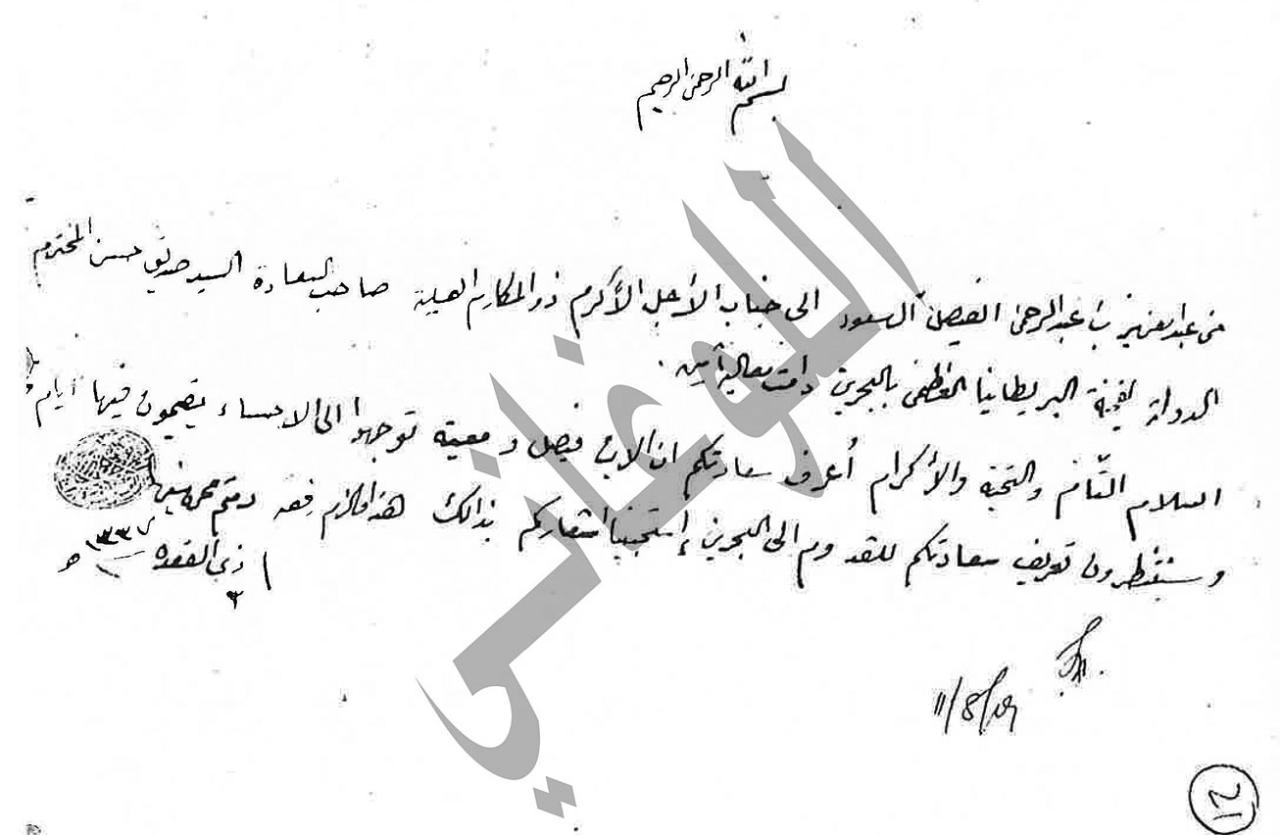 بسم الله الرحمن الرحيم
من عبد العزيز بن عبد الرحمن الفيصل السعود الى جناب الأجل الأكرم ذو المكارم العلية صاحب السعادة السيد صديق حسن المحترم
الدولة البريطانيا العظمى بالبحرين دامت معاليه آمين
السلام التام والتحية والأكرام أعرف سعادتكم ان الابن فيصل ومعيته توجهوا الى الاحساء يقيمون فيها ايام
وسينتظرون تعريف سعادتكم للقدوم الى البحرين إستحبينا اشعاركم بذالك هذا مالزم رفعه ودمتم محروسين
ذي القعده ١٣٣٧ هـ
٣
11/8/19
١٢